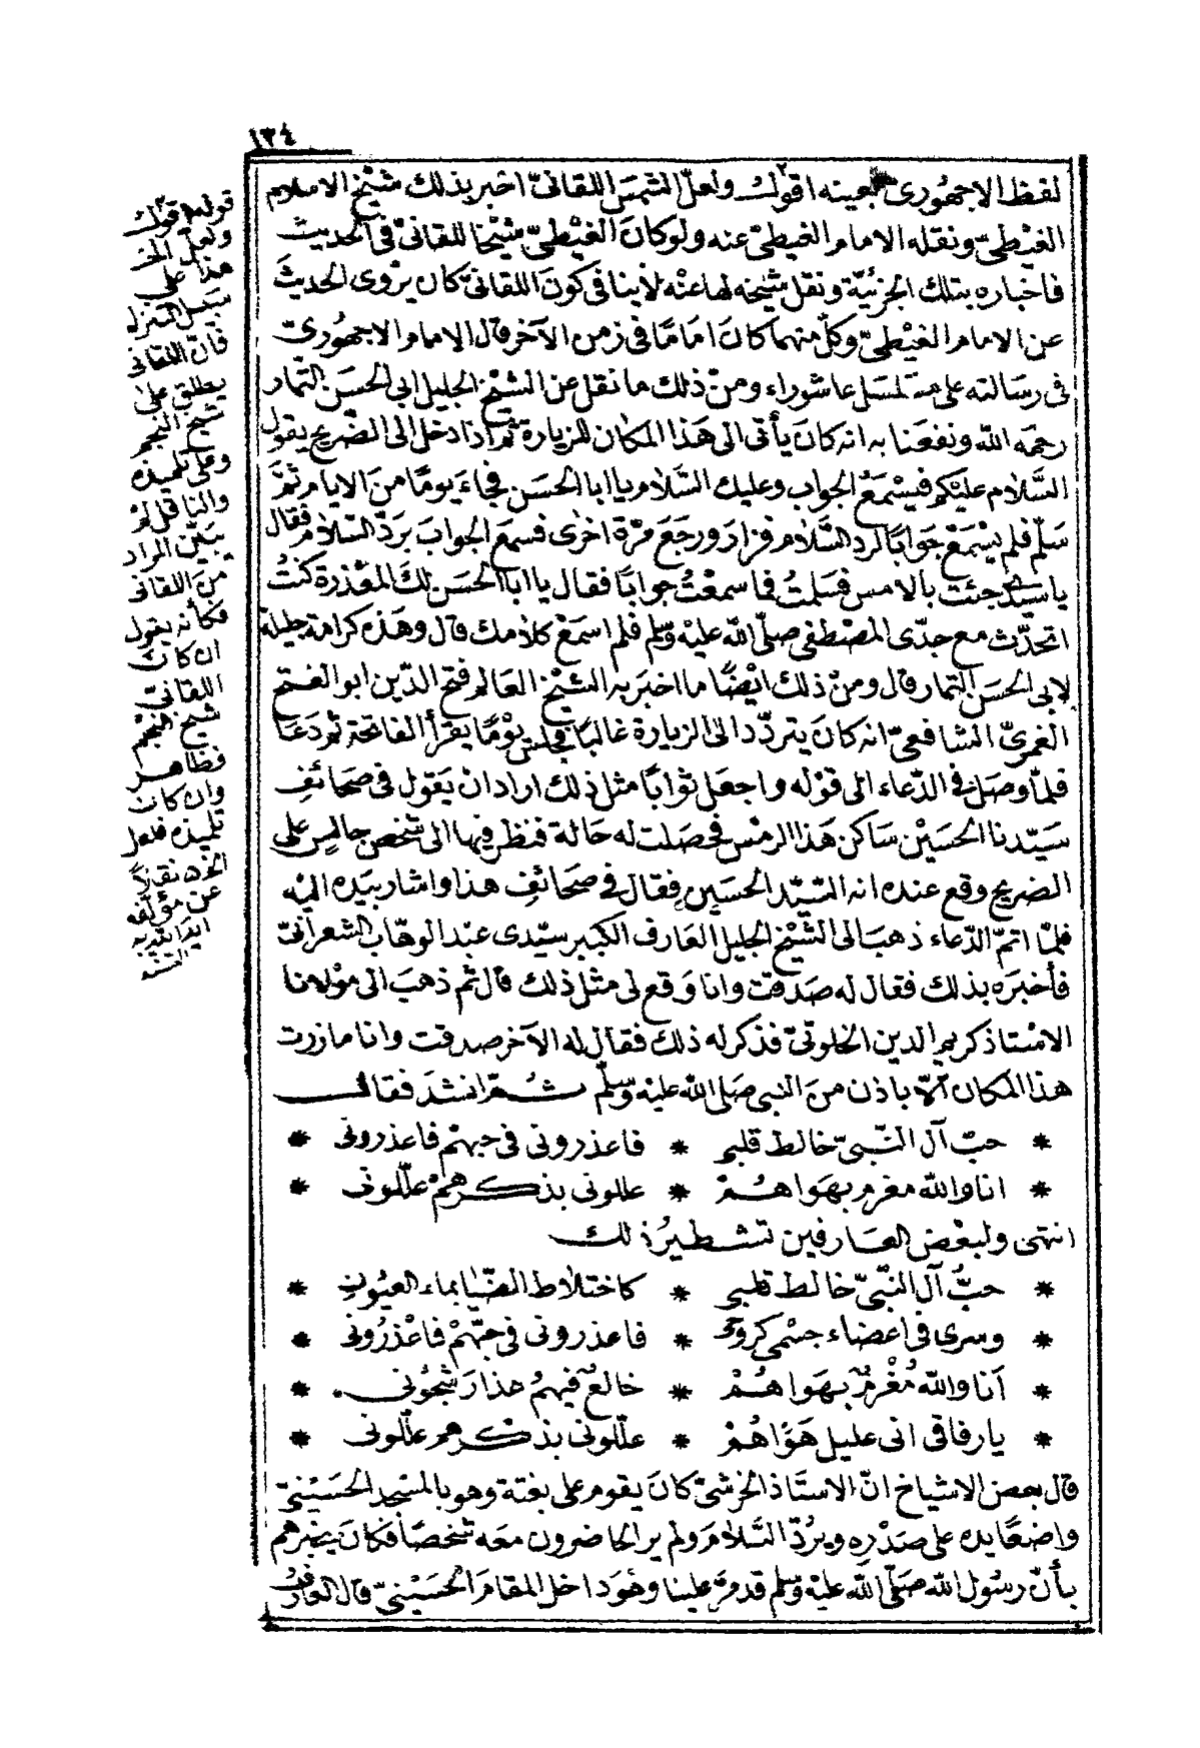 ١٣٤
لفظ الاجهورى بعينه اقول ولعل الشمس اللقانىّ اخبر بذلك شيخ الاسلام
الغيْطىّ ونقله الامام الغيطىّ عنه ولو كانَ الغيْطىّ شيْخا للقانىّ فى الحديث
فاخباره بتلك الجزئيّة ونقل شيخه لها عنْه لا ينافى كونَ اللقانىّ كان يرْوى الحديثَ
عن الامام الغيْطىّ وكلّ منهما كانَ امامًا فى زمن الآخر قال الامام الاجهُورىّ
فى رسَالته على مسَلسَل عاشوراء ومنْ ذلك ما نقل عن الشيْخ الجليل ابى الحسَن التمار
رحمَه الله ونفعَنا به انه كانَ يأتى الى هَذا المكان للزيارة ثم اذا دخل الى الضريح يقول
السَّلام عليْكم فيسْمَعُ الجواب وعليك السَّلام يا ابا الحسَن فجاءَ يومًا منَ الايام ثمَّ
سَلّم فلم يسْمَعْ جوَابًا لرد السَّلام فزارَ ورجَعَ مرّة اخرى فسمعَ الجوابَ برَدّ السّلام فقال
يا سيّدى جئت بالامس فسَلمتُ فما سمعْتُ جوابًا فقال يا ابا الحسَن لكَ المعْذرة كنتُ
اتحدّث مع جدّى المصْطفى صلّى الله عليْه وسلم فلم اسمَعْ كلامك قال وهَذه كرامة جليلة
لابى الحسَن التمار قال ومنْ ذلك ايْضًا ما اخبَر به الشيْخ العالم فتح الدّين ابو الفتح
الغمرىّ الشافعىّ انه كانَ يتردّد الى الزيارة غالبًا فجلسَ يوْمًا يقرَأ الفاتحة ثم دَعَا
فلمّا وصَل فى الدّعاء الى قوْله واجعَل ثوابًا مثل ذلك اراد انْ يَقول فى صَحائفِ
سَيّدنا الحسَيْن سَاكن هَذا الرمْس فحصَلت له حَالة فنظر فيها الى شخص جالسٍ على
الضريح وقع عنده انه السّيّد الحسَين فقال فى صحَائفِ هذا واشار بيَده اليْه
فلمّا اتمّ الدّعاء ذهبَ الى الشيْخ الجليل العارف الكبير سيّدى عبْد الوهّاب الشعرانىّ
فأخبرَه بذلك فقال له صَدقت وانا وَقع لى مثل ذلك قال ثم ذهبَ الى موْلانا
الاسْتاذ كريم الدين الخلوتىّ فذكر له ذلك فقال له الآخر صدقت وانا ما زرت
هذا المكان الّا باذن منَ النبى صَلى الله عليْه وسلّم ثُمَّ انشدَ فقال
* حبّ آل النّبىّ خالط قلبى * فاعذرونى فى حبهْم فاعذرونى *
* انا والله مغرم بهَواهُمْ * عللونى بذكرهمْ علّلونى *
انتهى ولبعْض العَارفين تشطيرُ ذلك
* حبُّ آل النّبىّ خالط قلبى * كاختلاط الضّيا بماء العيُونِ *
* وسرى فى اعضاء جسْمى كروحى * فاعذرونى فى حبّهمْ فاعْذرُونى *
* اَنا والله مُغْرمٌ بهَواهُمْ * خالعٌ فيهمُ عذارَ شجُونى *
* يا رفاقى انى عليل هَوَاهُمْ * علّلونى بذكرهم علّلونى *
قال بعض الاشياخ انّ الاستَاذ الخرشىّ كانَ يقوم على بغتة وهو بالمسْجد الحسَيْنىّ
واضعًا يده على صَدْرِه ويرُدّ السَّلامَ ولم ير الحاضرون معَه شخصًا فكانَ يخبرهم
بأنّ رسُول الله صَلّى الله عليْه وسَلم قد مرَّ علينا وهُوَ داخل المقامَ الحسَيْنىّ قال العارفُ
قوله اقول
ولعل الخ
هذا على
سبيل التنزل
فانّ اللقانى
يطلق على
شيخ النجم
وعلى تلميذه
والناقل لم
يبيّن المراد
من اللقانى
فكأنه يقول
ان كان
اللقانى
شيخ النجم
فظاهر
وان كان
تلميذه فلعل
الخ نقلاً
عن مؤلّفه